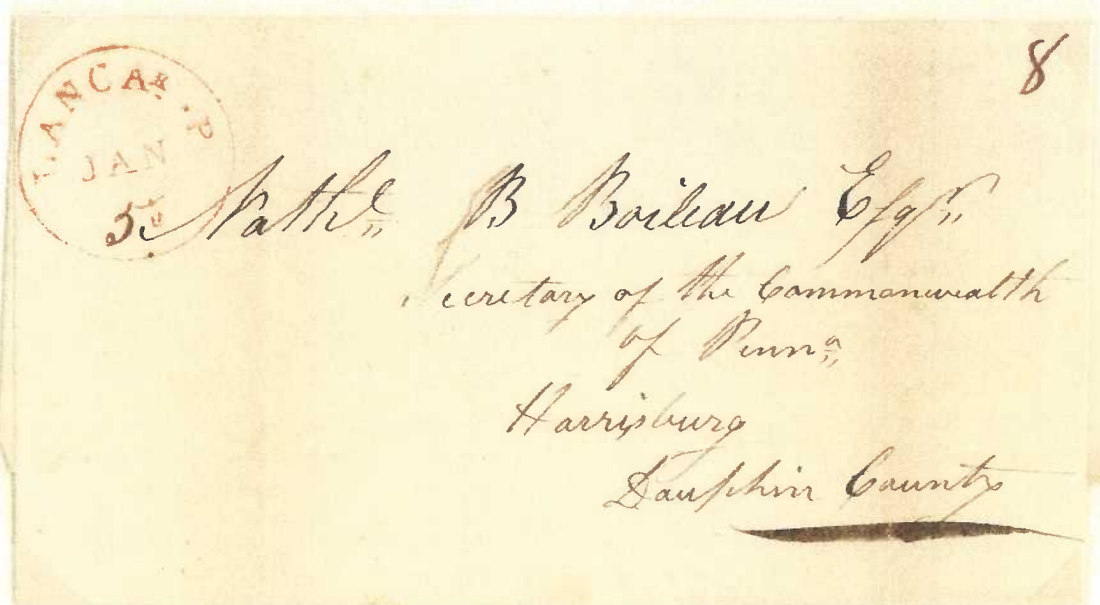 8
LANCAR. P
JAN
5
Nathl B Boileau Esqr
Secretary of the Commonwealth
of Penna
Harrisburg
Dauphin County